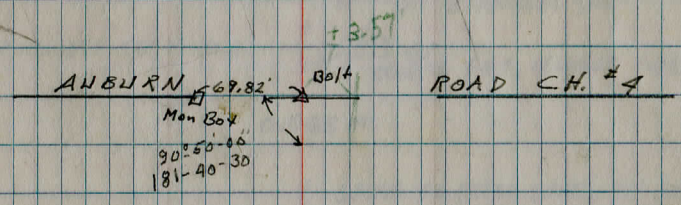 + 3.57
AUBURN 69.82' Bolt ROAD CH. #4
Mon Box
90°-50'-00"
181-40-30